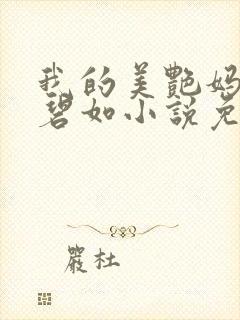 我的美艷媽
碧如小説免
嚴杜